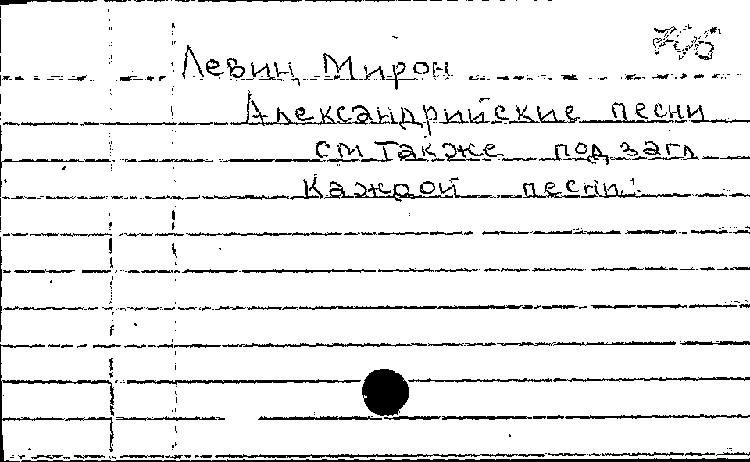 Левин, Мирон
Александрийские песни
см также под загл
каждой песни.